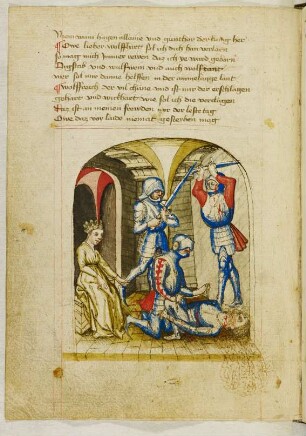 Nun wann hagen allaine und gunther der kunig her
Owe lieber wolffhart sol ich dich han verloren
So mag mich ymmer rewen das ich ye ward geborn
Sigstab und wolfwein und auch wolfprant
wer sol mir danne helffen in der amelunge lant
Helffreich der vil chune und ist mir der erschlagen
gerbart und wichart wie sol ich die verclagen
Das ist an meinen frewden mir der leste tag
Owe das vor laide niemat gesterben mag